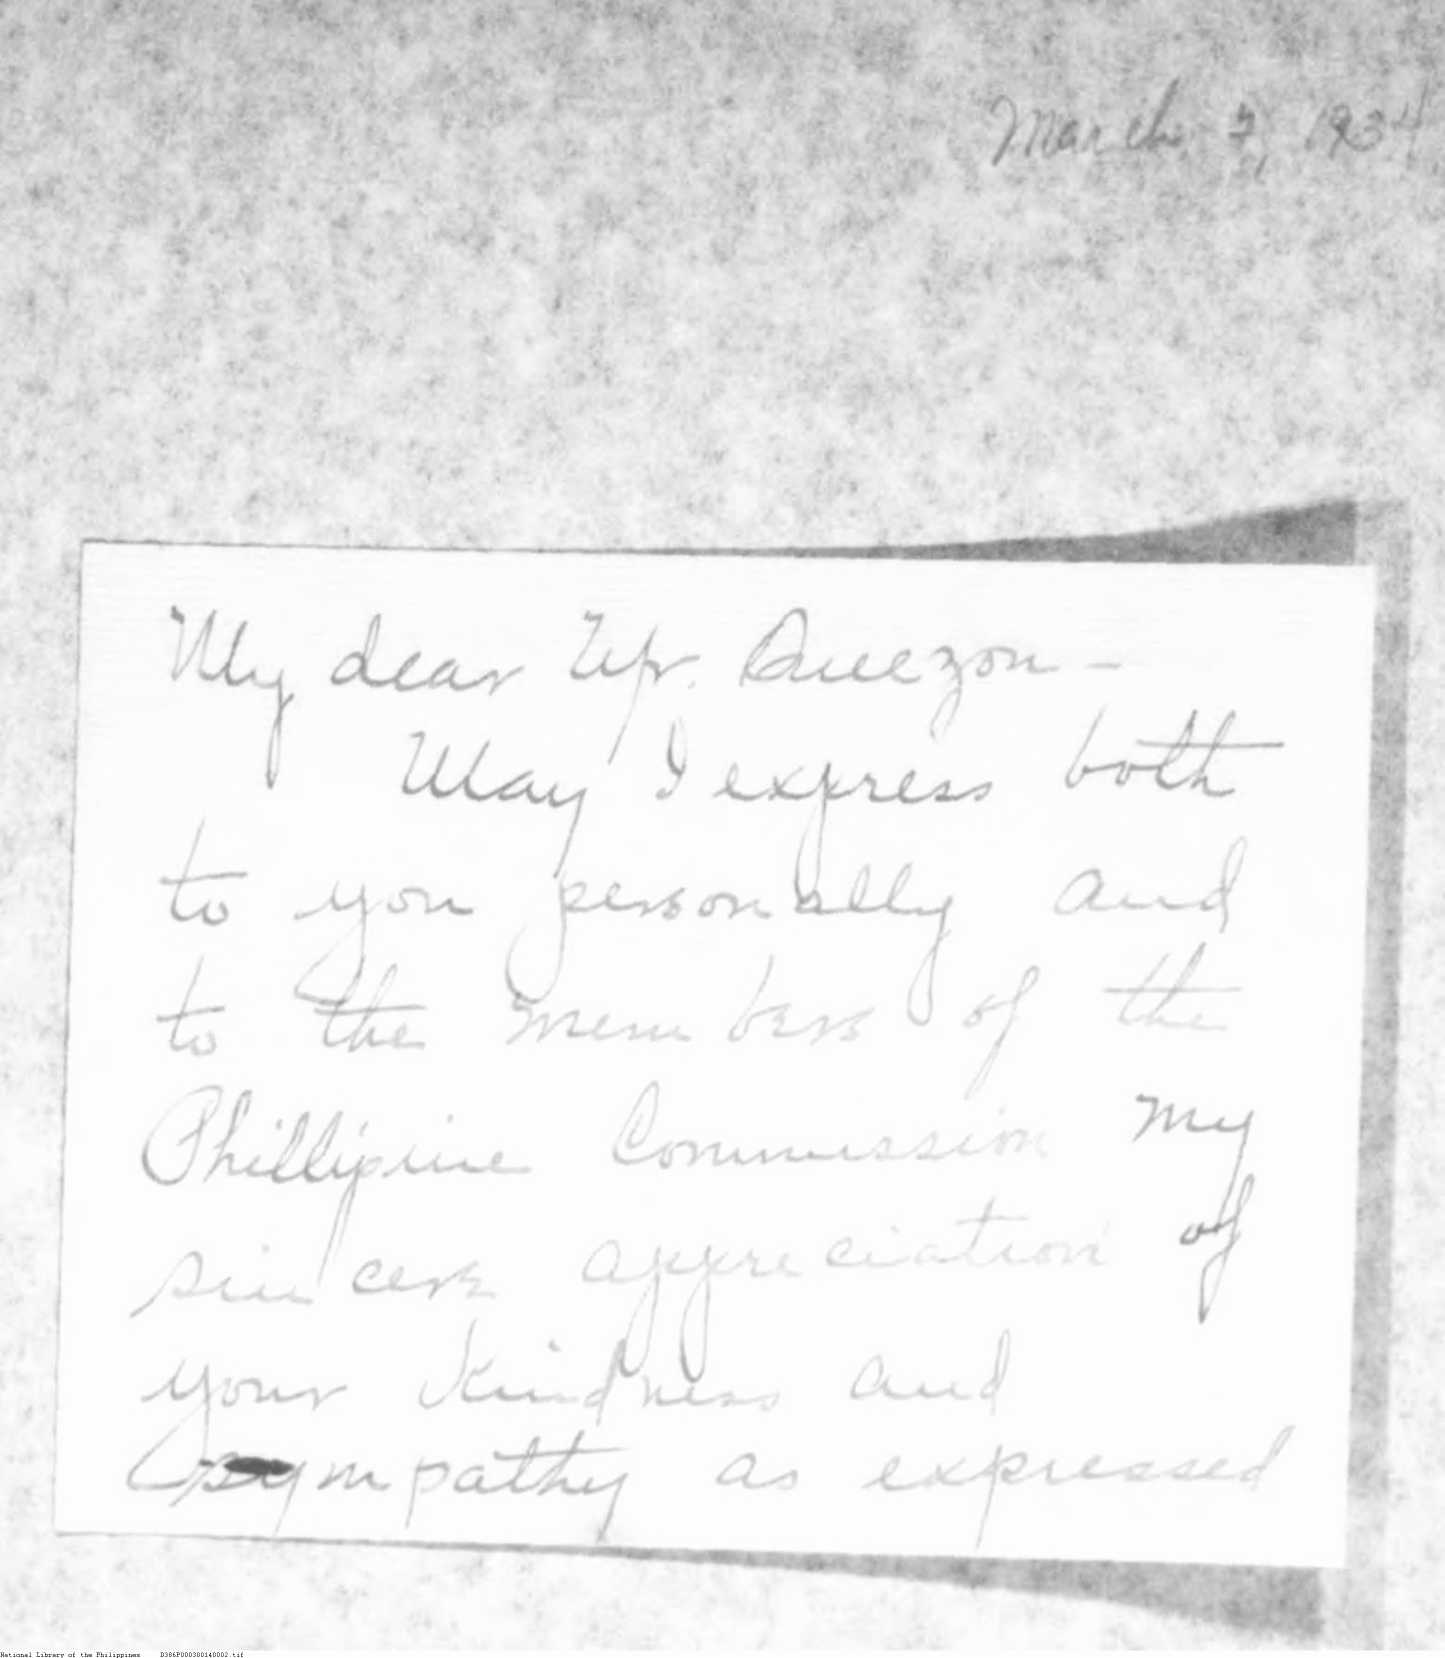 March 7, 1934
My dear Mr. Quezon -
May I express both
to you personally and
to the members of the
Phillipine Commission my
sincere appreciation of
your kindness and
sympathy as expressed
National Library of the Philippines D386P000300140002.tif